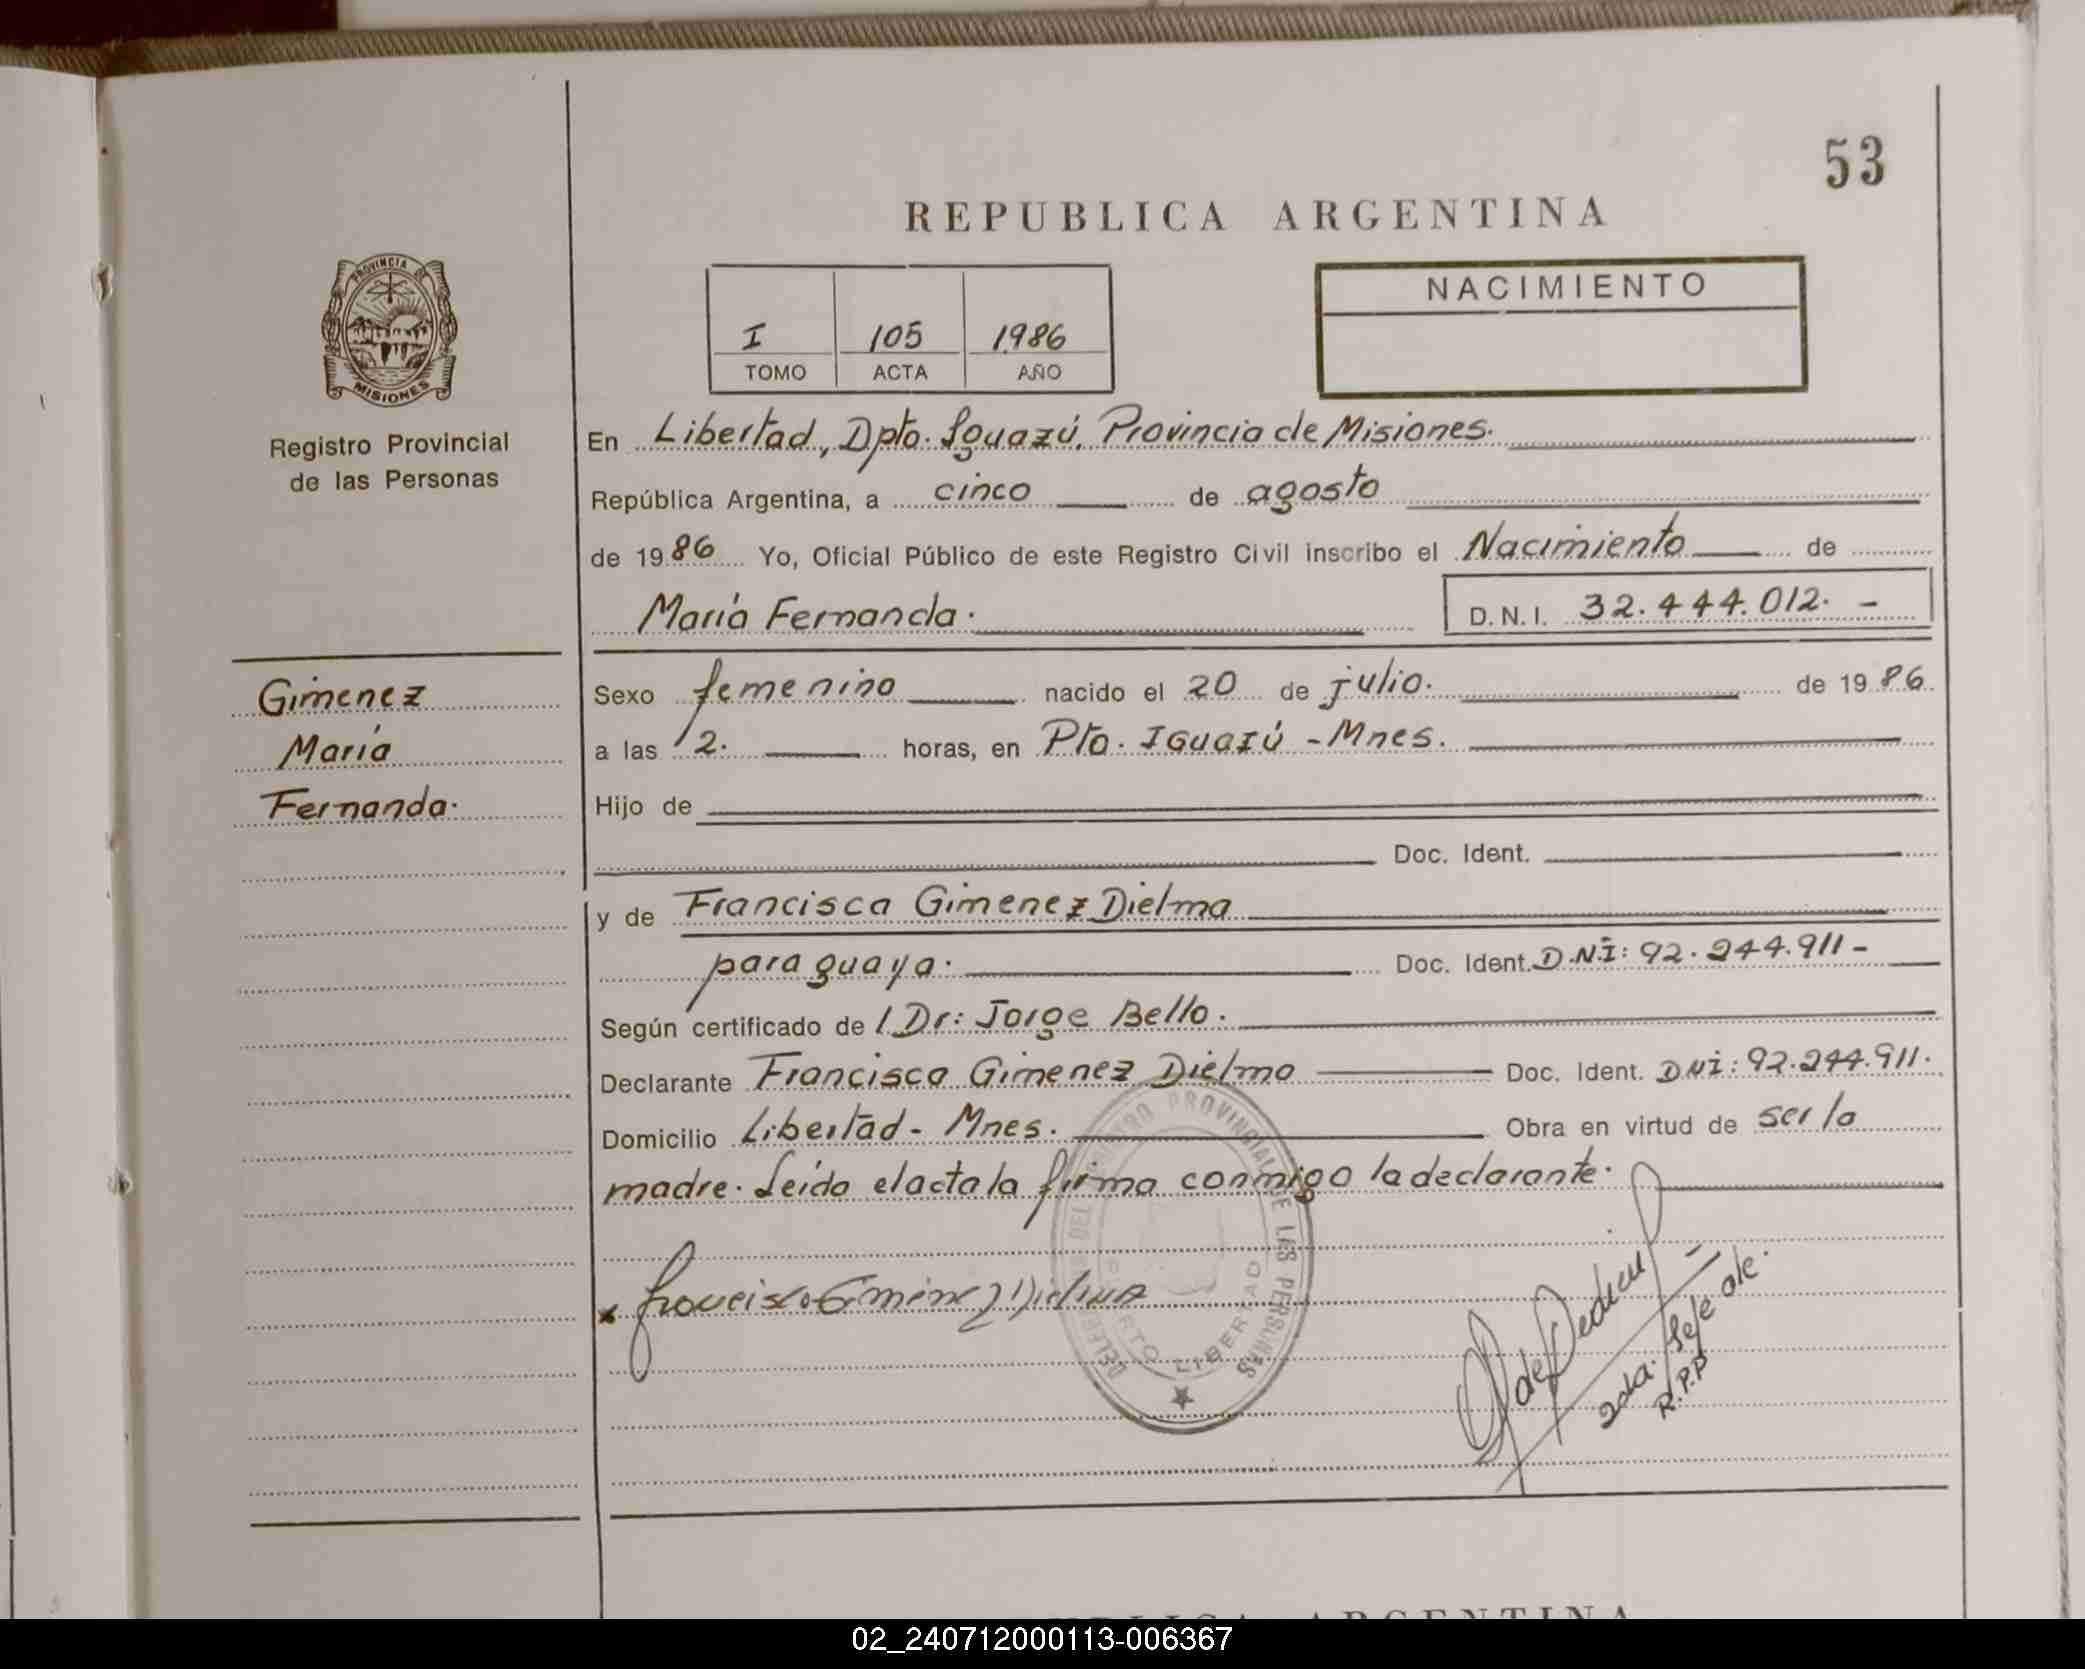 53
REPUBLICA ARGENTINA
PROVINCIA DE
MISIONES
Registro Provincial
de las Personas
I 105 1986
TOMO ACTA AÑO
NACIMIENTO
En Libertad, Dpto. Iguazú, Provincia de Misiones.
República Argentina, a cinco de agosto
de 1986 Yo, Oficial Público de este Registro Civil inscribo el Nacimiento de
María Fernanda. D.N.I. 32.444.012. -
Gimenez
María
Fernanda.
Sexo femenino nacido el 20 de julio. de 1986
a las 12. horas, en Pto. Iguazú - Mnes.
Hijo de
Doc. Ident.
y de Francisca Gimenez Dielma
paraguaya. Doc. Ident. D.N.I: 92.244.911 -
Según certificado de / Dr: Jorge Bello.
Declarante Francisca Gimenez Dielma Doc. Ident. DNI: 92.244.911.
Domicilio Libertad - Mnes. Obra en virtud de ser la
madre. Leída el acta la firma conmigo la declarante.
PROVINCIAL DE LAS PERSONAS
PUERTO LIBERTAD
x Francisca Gimenez Dielma
2da. Jefe de.
R.P.P
REPUBLICA ARGENTINA
02_240712000113-006367